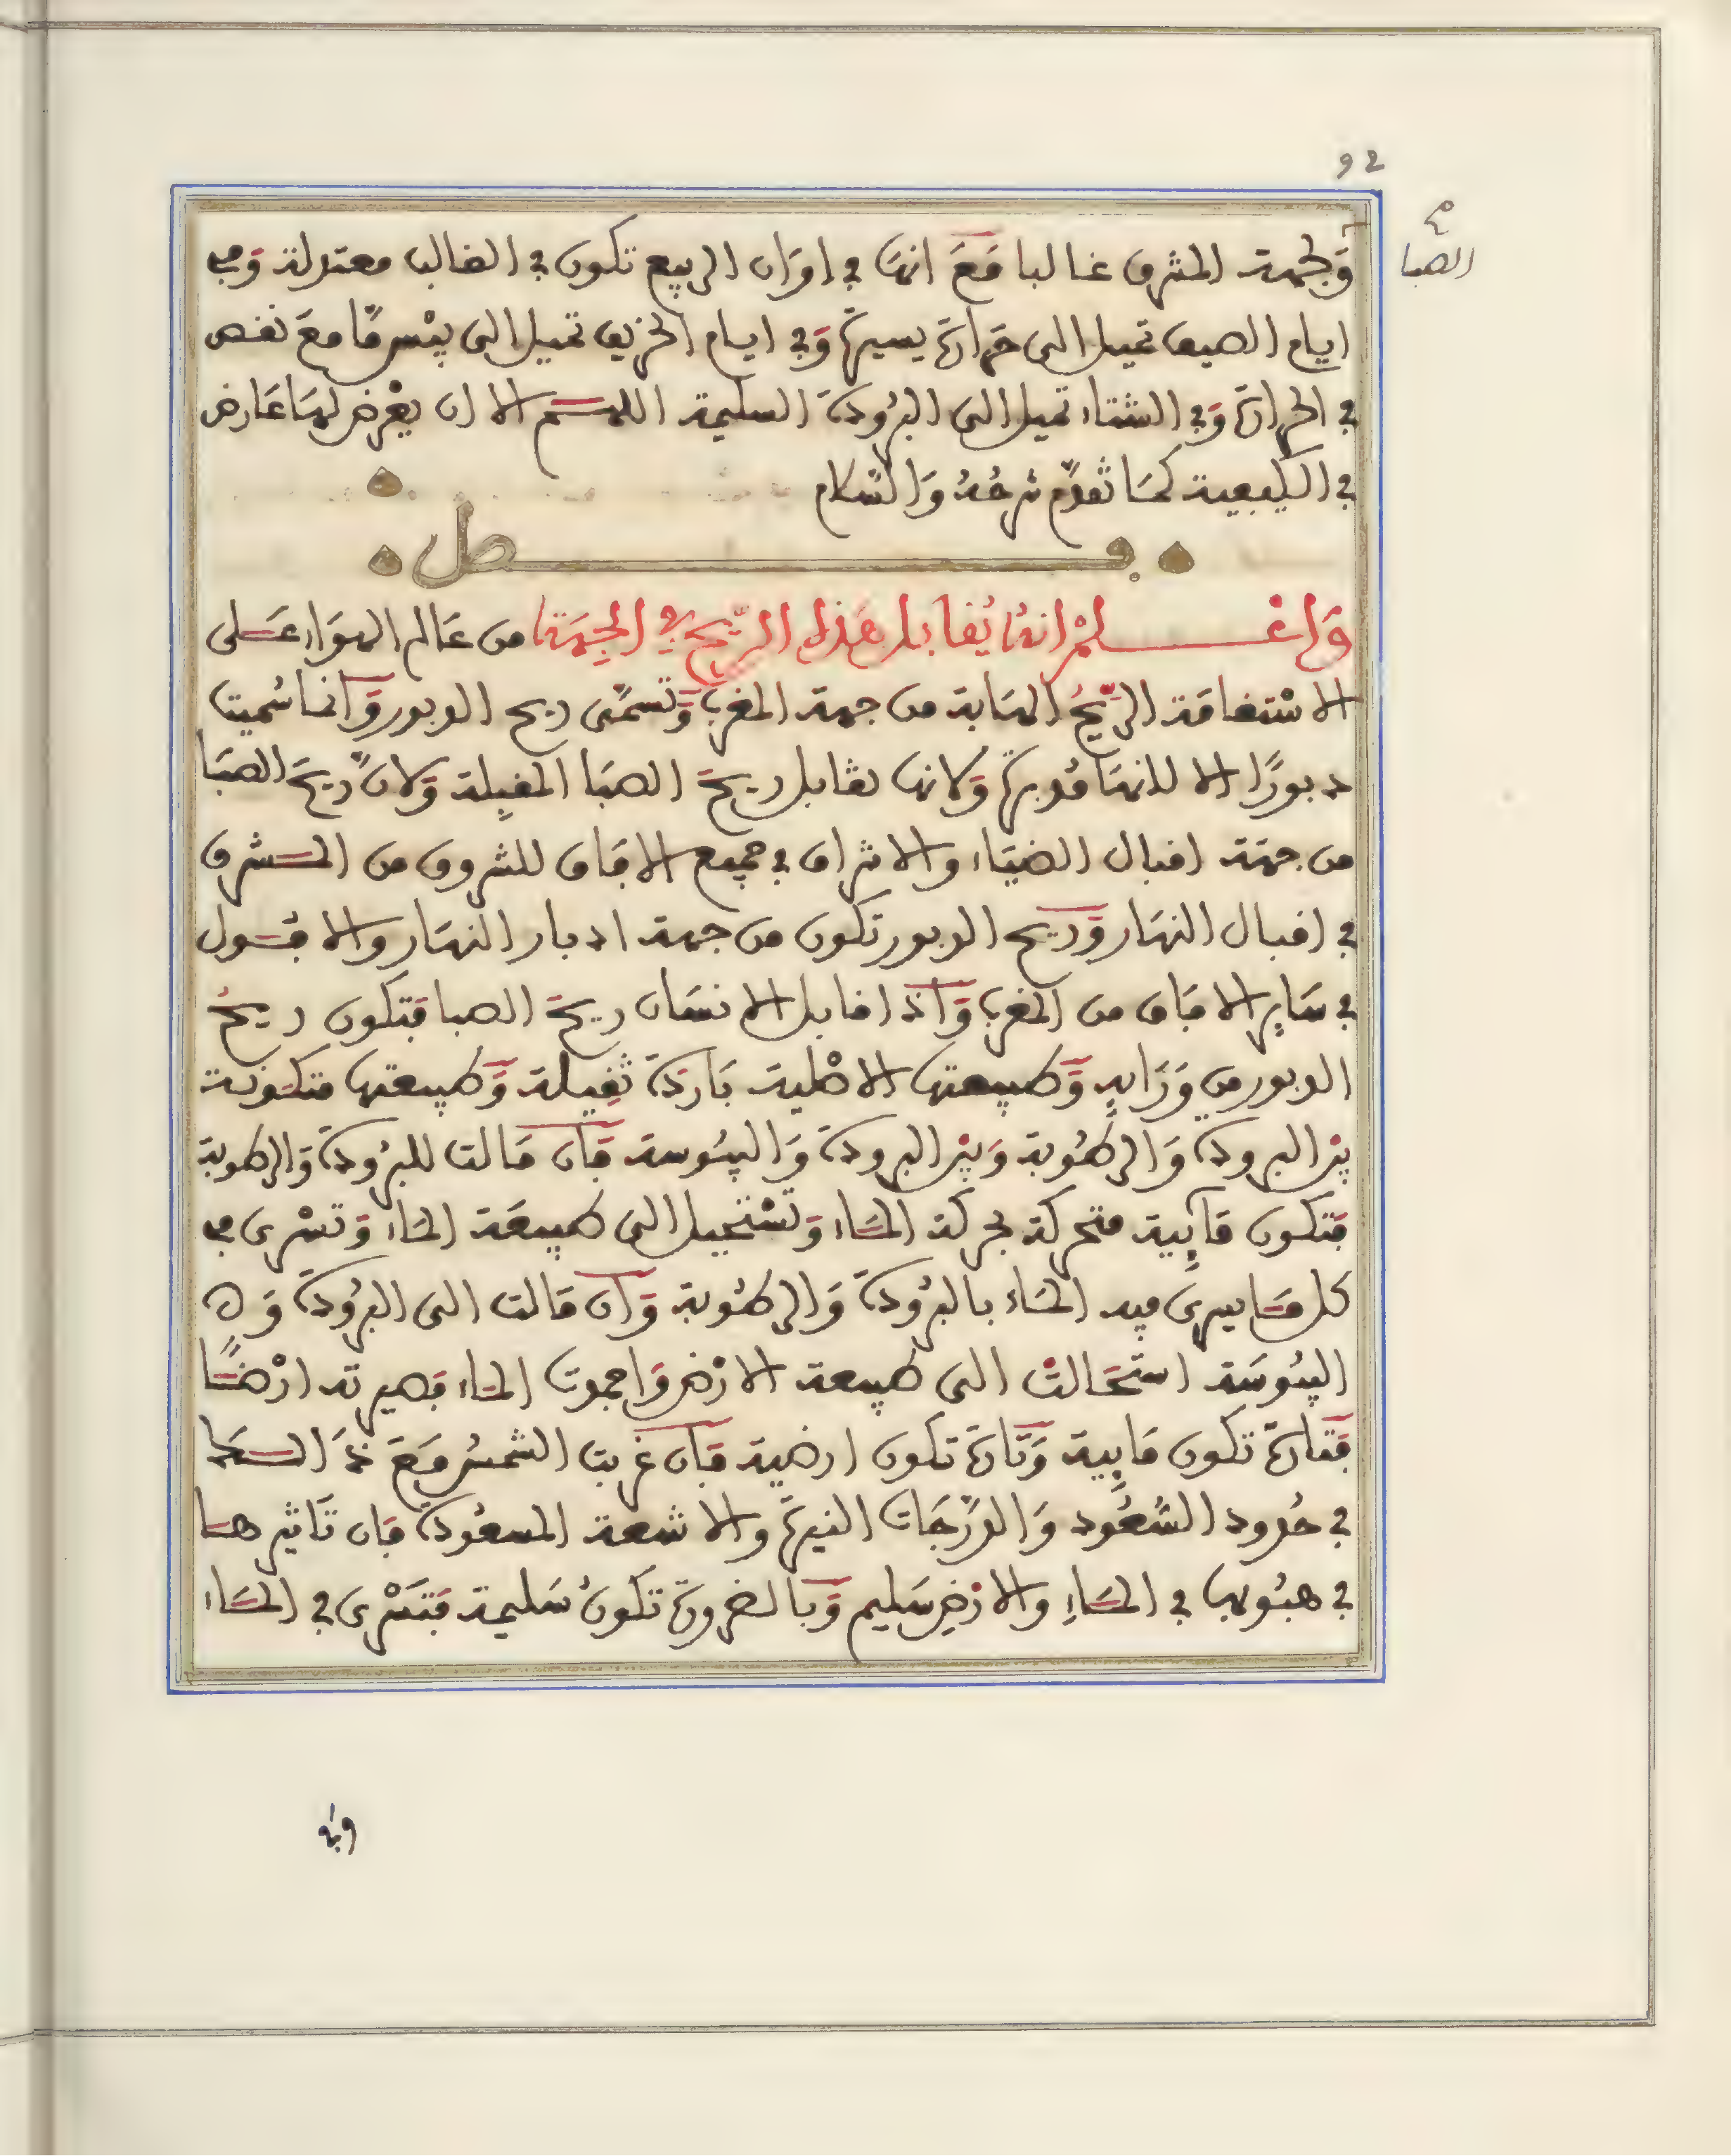 92
الصبا
وَلجهة المشرق غالبا مَعَ انهَا في اوَان الربيع تكون في الغالب معتدلة وَفي
ايام الصيف تميل الى حَرارَة يسيرَة وَفي ايام الخريف تميل الى يبْس مَّا معَ نقص
في الحرارَة وَفي الشتاء تميل الى البرُودَة السليمة اللهم الا ان يعْرض لهَا عَارض
في الكيفية كمَا تقدَّم شرحُهُ وَالسَّلام
فصل
وَاعْلمْ انهَا يُقابل هَذه الرّيح في الجِهَة من عَالم الهوَاء عَلى
الاسْتقامَة الرّيحُ الهَابة من جهة المغرب وَتسمَّى ريح الدبور وَانما سُميت
دبورًا الا لانهَا مُدبرَة وَلانها تقابل ريحَ الصبَا المقبِلة وَلانَّ ريحَ الصبَا
من جهَة اقبال الضيَاء والاشراق في جميع الافاق للشروق من المشرق
في اقبال النهَار وَريح الدبور تكون من جهة ادبار النهَار والافول
في سَايرِ الافاق من المغرب وَاذا قابل الانسَان ريحَ الصبا فتكون ريحُ
الدبور من وَرَايهِ وَطبيعتها الاصْلية بَاردَة ثقِيلة وَطبيعتها متكونة
بيْن البرودَة وَالرطُوبة وَبيْن البرودَة وَاليبُوسة فَان مَالت للبرُودَة وَالرطوبة
فتكون مَايِية متحركة بحركة المَاء وَتسْتحيل الى طبيعَة المَاء وَتسْري في
كل مَا يسري فيه المَاء بالبرُودَة وَالرطُوبة وَان مَالت الى البرُودَة وَ
اليبُوسَة استحَالتْ الى طبيعة الارْض وَاجمدت المَاء فصيرته ارْضًا
فتَارَة تكون مَايِية وَتَارَة تكون ارضية فَان غربت الشمسُ مَعَ السمَا
في حُدود السُّعُود وَالدَّرَجَات النيرَة والاشعة المسعُودَة فان تَاثيرهَا
في هبُوبها في المَاءِ والارْضِ سَليم وَبالضرورَة تكونُ سَليمة فتَسْري في المَاء